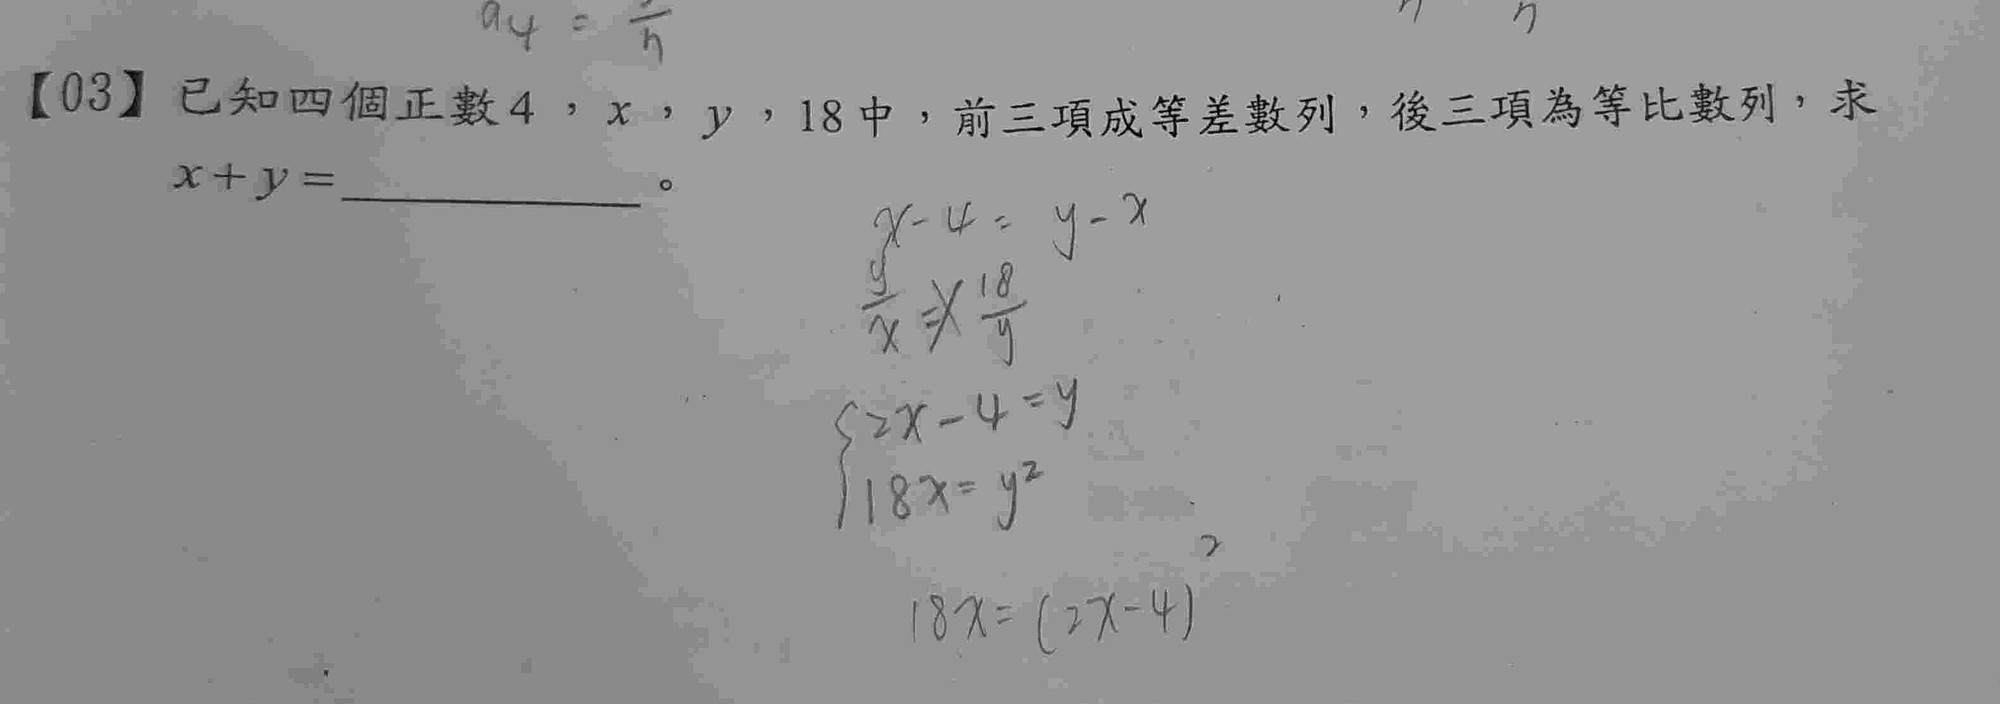 a₄ =
【03】已知四個正數4，x，y，18中，前三項成等差數列，後三項為等比數列，求
x+y=＿＿＿＿＿。
x-4= y-x
y/x = 18/y
{2x-4=y
18x=y²
18x=(2x-4)²